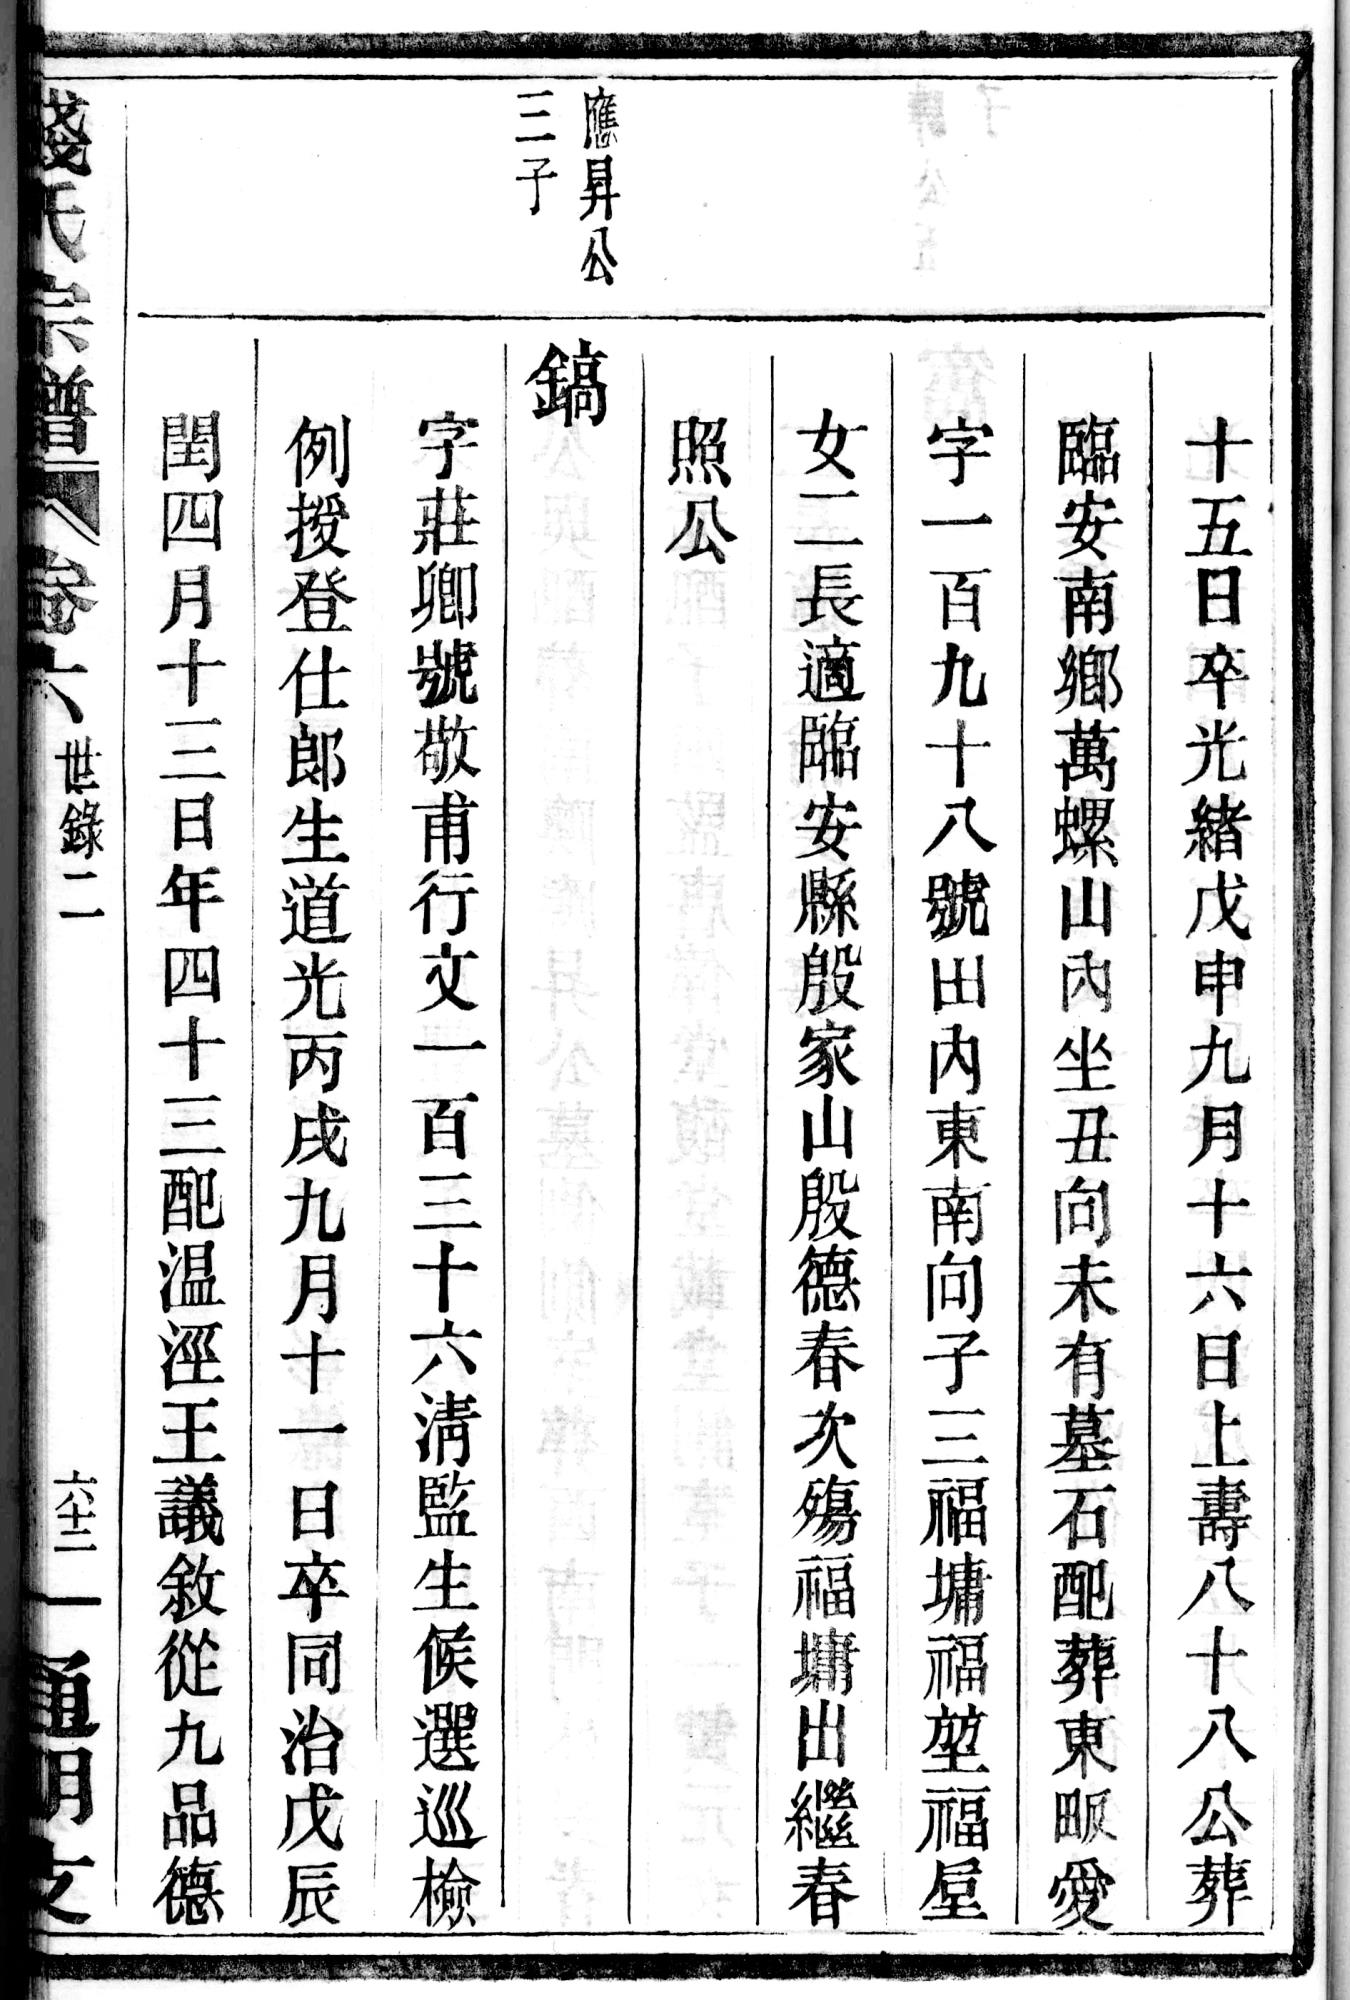 十五日卒光緒戊申九月十六日上壽八十八公葬
臨安南鄉萬螺山內坐丑向未有墓石配葬東畈愛
字一百九十八號田內東南向子三福墉福堃福屋
女二長適臨安縣殷家山殷德春次殤福墉出繼春
照公
應昇公
三子
鎬
字莊卿號敬甫行文一百三十六清監生候選巡檢
例授登仕郎生道光丙戌九月十一日卒同治戊辰
閏四月十三日年四十三配温涇王議敘從九品德
錢氏宗譜 卷六 世錄二 六十三 通明支